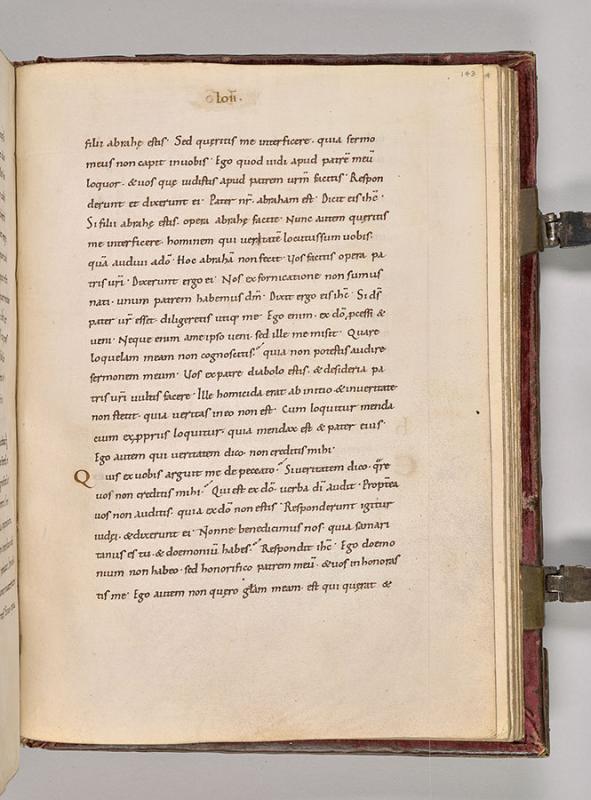 143
Ioħ.
filii abrahę estis. Sed queritis me interficere. quia sermo
meus non capit inuobis. Ego quod uidi apud patrē meū
loquor. & uos quę uidistis apud patrem urm̄ facitis. Respon
derunt et dixerunt ei. Pater nr̄. abraham est. Dicit eis ihc̄.
Si filii abrahę estis. opera abrahę facite. Nunc autem queritis
me interficere. hominem qui ueritatē locutussum uobis.
quā audiui adō. Hoc abrahā non fecit. Uos facitis opera pa
tris urī. Dixerunt ergo ei. Nos exfornicatione non sumus
nati. unum patrem habemus dm̄. Dixit ergo eis ihc̄. Si ds̄
pater ur̄ esset. diligeretis utiq; me. Ego enim. ex dō pcessi &
ueni. Neque enim ameipso ueni. sed ille me misit. Quare
loquelam meam non cognoscitis. quia non potestis audire
sermonem meum. Uos expatre diabolo estis. & desideria pa
tris urī uultis facere. Ille homicida erat ab initio. & inueritate
non stetit. quia ueritas ineo non est. Cum loquitur menda
cium exppriis loquitur. quia mendax est & pater eius.
Ego autem qui ueritatem dico. non creditis mihi.
Quis ex uobis arguit me de peccato. Si ueritatem dico. qre
uos non creditis mihi. Qui est ex dō. uerba dī audit. Propterea
uos non auditis. quia ex dō non estis. Responderunt igitur
iudei. & dixerunt ei. Nonne benedicimus nos. quia samari
tanus es tu. & doemoniū habes. Respondit ihc̄. Ego doemo
nium non habeo. sed honorifico patrem meū. & uos inhonoras
tis me. Ego autem non quero glam meam. est qui querat &